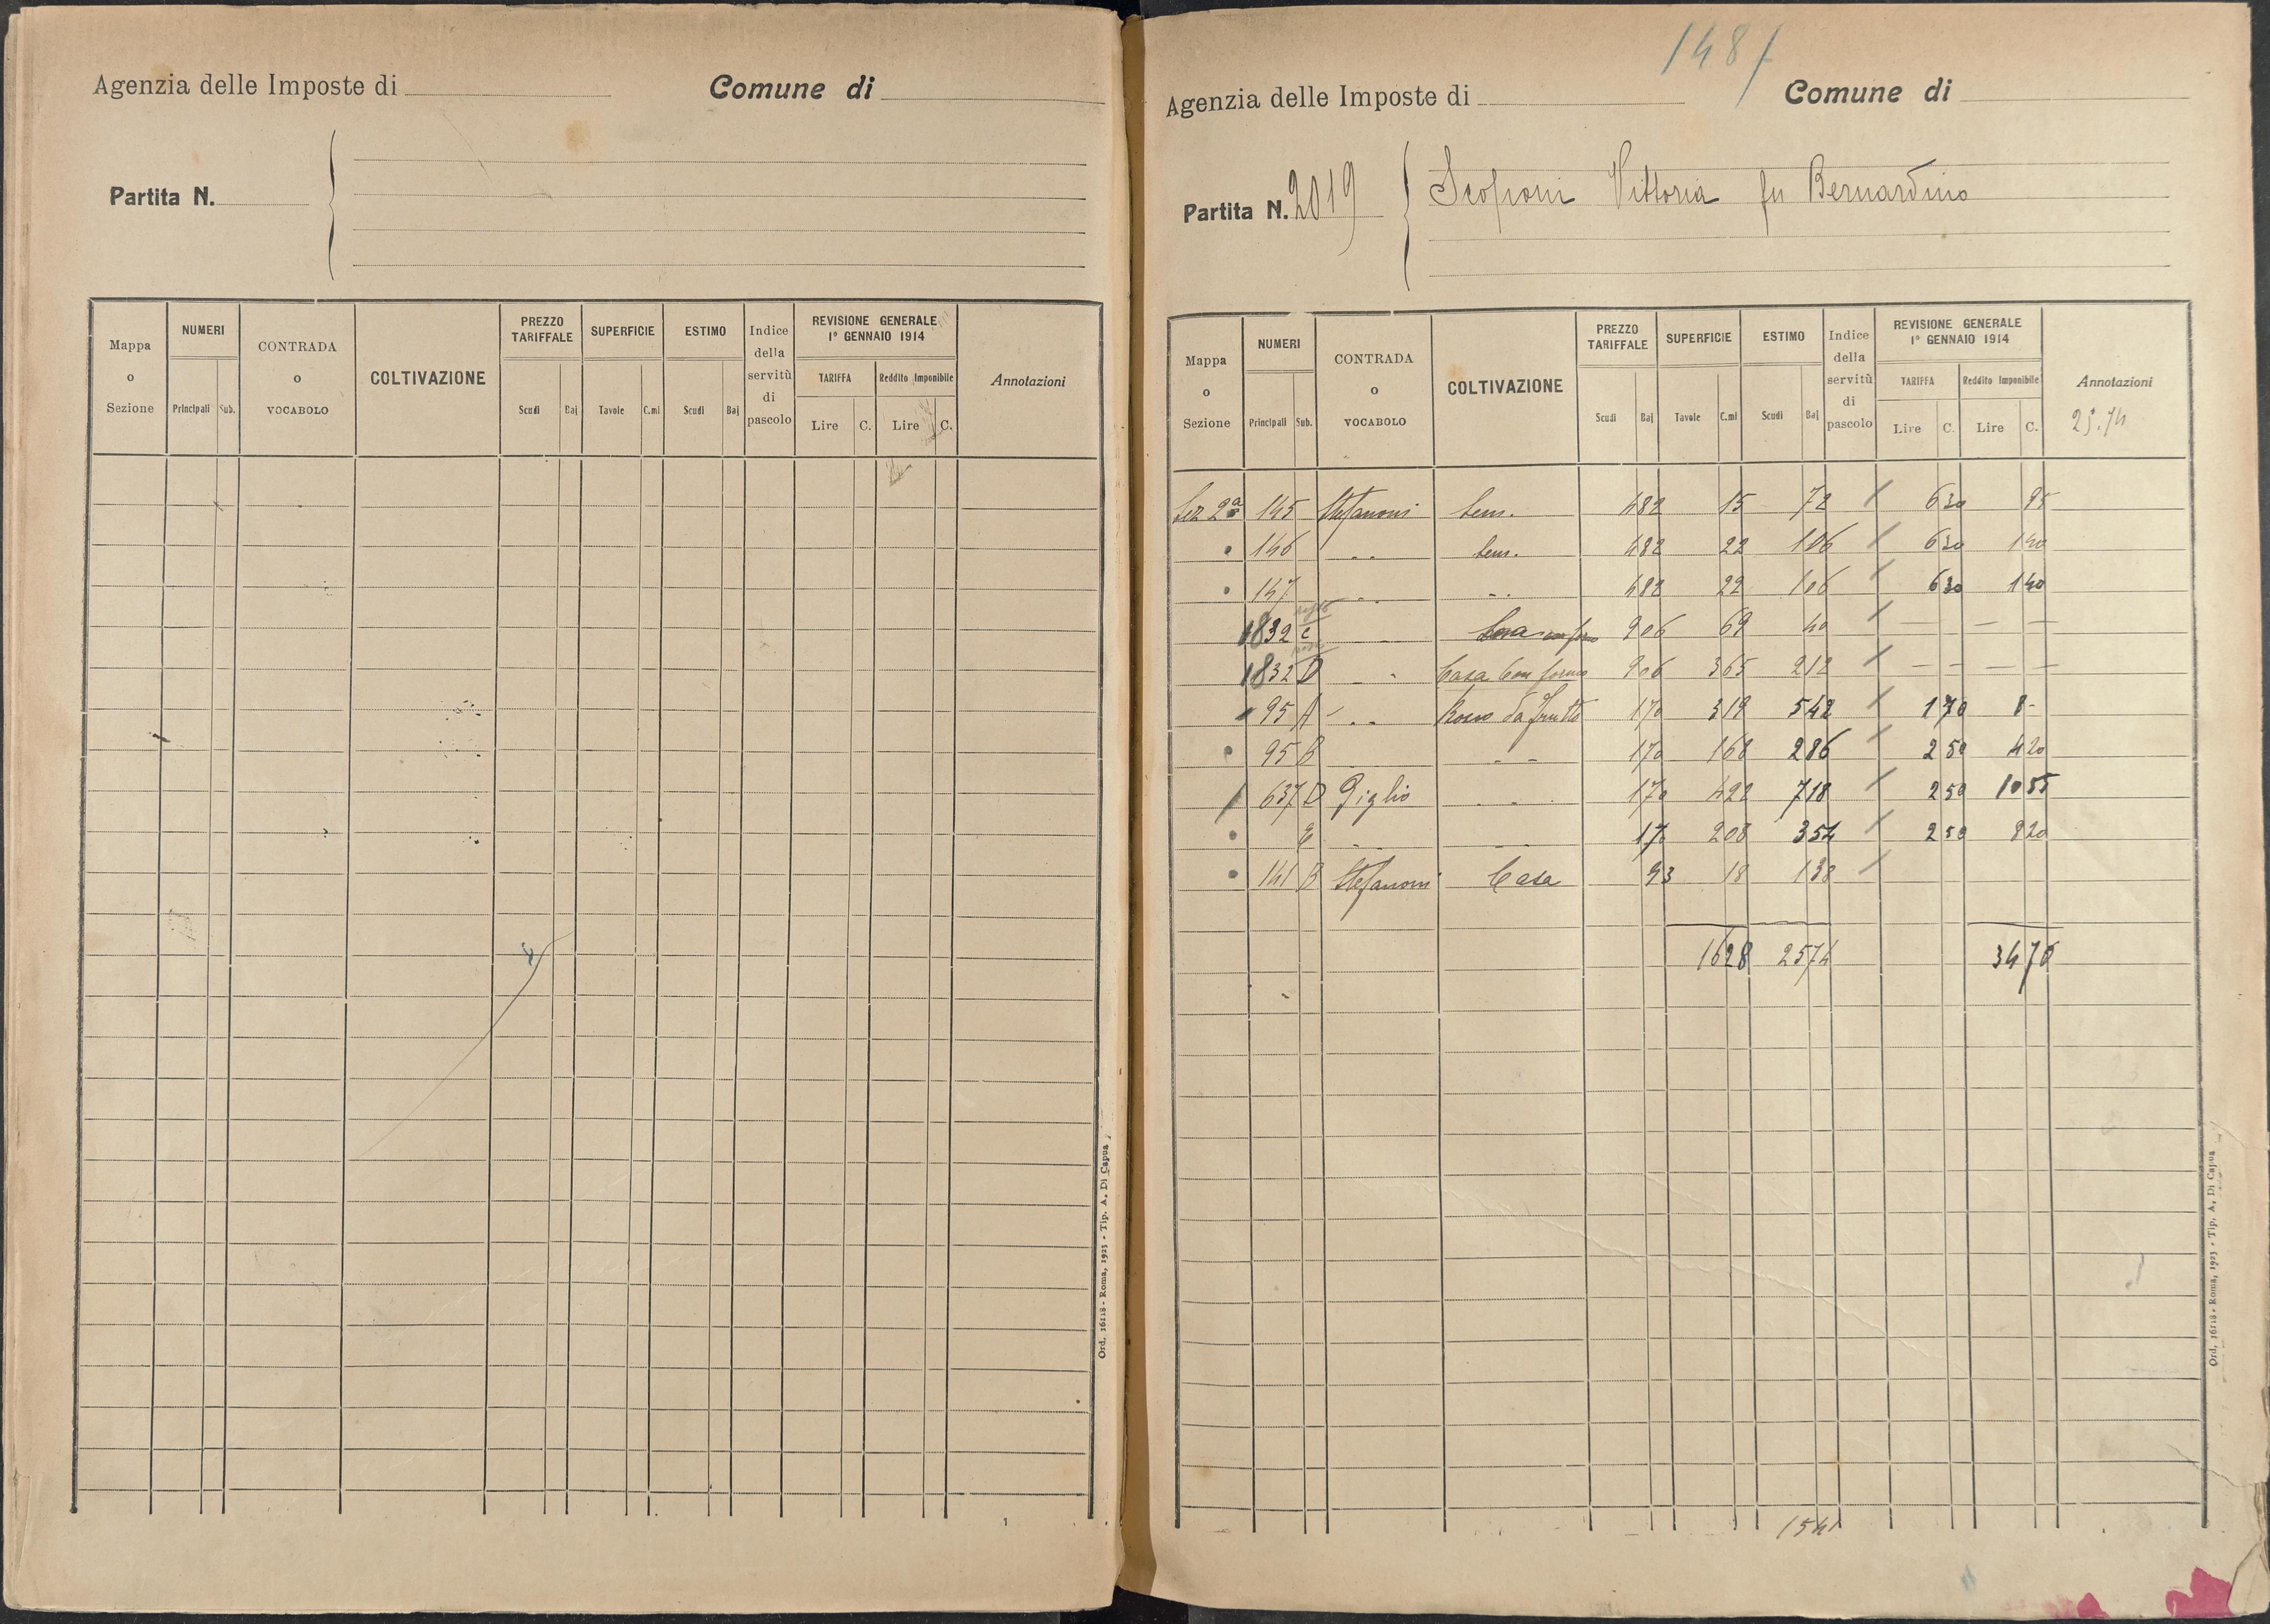 Agenzia delle Imposte di Comune di
Partita N.
Mappa o Sezione NUMERI Principali Sub. CONTRADA o VOCABOLO COLTIVAZIONE PREZZO TARIFFALE Scudi Baj SUPERFICIE Tavole C.mi ESTIMO Scudi Baj Indice della servitù di pascolo REVISIONE GENERALE 1° GENNAIO 1914 TARIFFA Lire C. Reddito Imponibile Lire C. Annotazioni
Ord. 16118 - Roma, 1923 - Tip. A. Di Capua
1487
Agenzia delle Imposte di Comune di
Partita N. 2019 Scopioni Vittoria fu Bernardino
Mappa o Sezione NUMERI Principali Sub. CONTRADA o VOCABOLO COLTIVAZIONE PREZZO TARIFFALE Scudi Baj SUPERFICIE Tavole C.mi ESTIMO Scudi Baj Indice della servitù di pascolo REVISIONE GENERALE 1° GENNAIO 1914 TARIFFA Lire C. Reddito Imponibile Lire C. Annotazioni
25.74
Sez 2ª 145 Stefanoni Sem. 482 15 72 / 630 95
• 146 .. Sem. 482 22 106 / 630 140
• 147 .. .. 482 22 106 / 630 140
1832 c .. 906 69 40 / — — — —
1832 D .. Casa con forno 906 365 212 / — — — —
95 A .. Bosco da frutto 170 319 542 / 170 8-
• 95 B .. 170 168 286 / 250 420
/ 637 D Giglio .. 170 422 718 / 250 1055
• E .. .. 170 208 354 / 250 820
• 141 B Stefanoni Casa 93 18 138 /
1628 2574 3470
1541
Ord. 16118 - Roma, 1923 - Tip. A. Di Capua